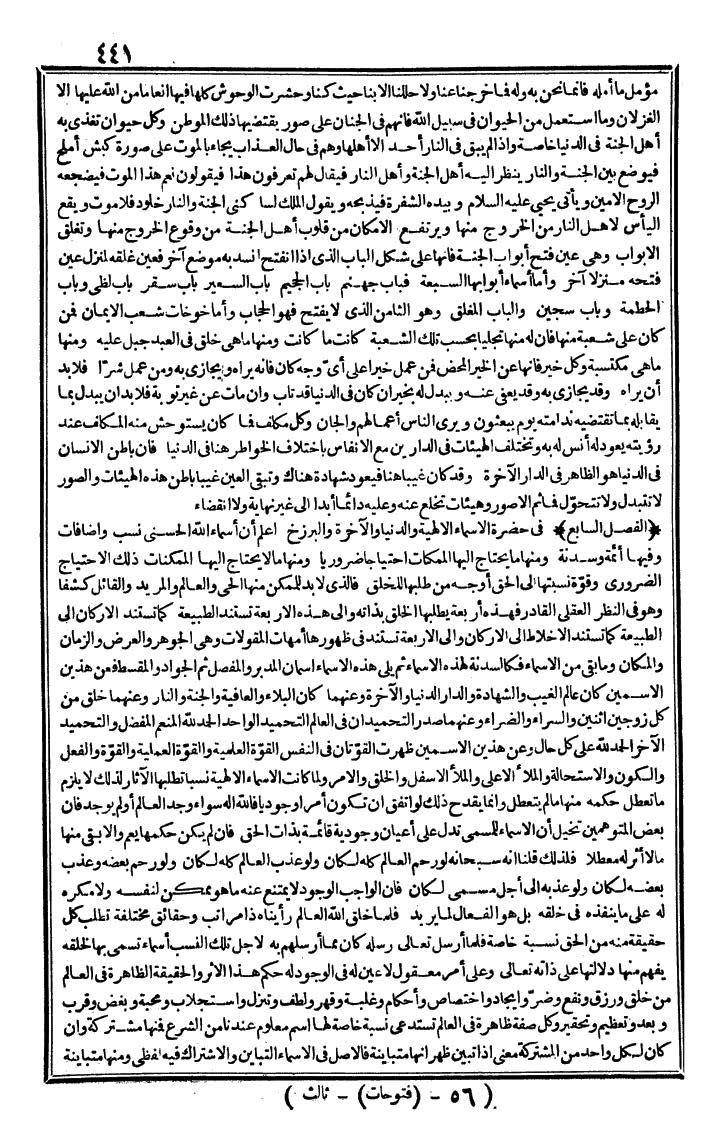 ٤٤١
مؤمل ما أمله فانما نحن به وله فما خرجنا عنا ولا حللنا الا بنا حيث كنا وحشرت الوحوش كلها فيها انعاما من الله عليها الا
الغزلان وما استعمل من الحيوان فى سبيل الله فانهم فى الجنان على صور يقتضيها ذلك الموطن وكل حيوان تغذى به
أهل الجنة فى الدنيا خاصة واذا لم يبق فى النار أحد الا أهلها وهم فى حال العذاب يجاء بالموت على صورة كبش أملح
فيوضع بين الجنة والنار ينظر اليه أهل الجنة وأهل النار فيقال لهم تعرفون هذا فيقولون نعم هذا الموت فيضجعه
الروح الامين ويأتى يحيى عليه السلام وبيده الشفرة فيذبحه ويقول الملك لساكنى الجنة والنار خلود فلا موت ويقع
اليأس لاهل النار من الخروج منها ويرتفع الامكان من قلوب أهل الجنة من وقوع الخروج منها وتغلق
الابواب وهى عين فتح أبواب الجنة فانها على شكل الباب الذى اذا انفتح انسد به موضع آخر فعين غلقه لمنزل عين
فتحه منزلا آخر وأما أسماء أبوابها السبعة فباب جهنم باب الجحيم باب السعير باب سقر باب لظى وباب
الحطمة وباب سجين والباب المغلق وهو الثامن الذى لا يفتح فهو الحجاب وأما خوخات شعب الايمان فمن
كان على شعبة منها فان له منها تجليا بحسب تلك الشعبة كانت ما كانت ومنها ما هى خلق فى العبد جبل عليه ومنها
ما هى مكتسبة وكل خير فانها عن الخير المحض فمن عمل خيرا على أىّ وجه كان فانه يراه ويجازى به ومن عمل شرّا فلا بد
أن يراه وقد يجازى به وقد يعفى عنه ويبدل له بخير ان كان فى الدنيا قد تاب وان مات عن غير توبة فلا بد ان يبدل بما
يقابله بما تقتضيه ندامته يوم يبعثون ويرى الناس أعمالهم والجان وكل مكلف فما كان يستوحش منه المكلف عند
رؤيته يعود له أنس له به وتختلف الهيئات فى الدارين مع الانفاس باختلاف الخواطر هنا فى الدنيا فان باطن الانسان
فى الدنيا هو الظاهر فى الدار الآخرة وقد كان غيبا هنا فيعود شهادة هناك وتبقى العين غيبا باطن هذه الهيئات والصور
لا تتبدل ولا تتحوّل فما ثم الا صور وهيئات تخلع عنه وعليه دائما أبدا الى غير نهاية ولا انقضاء
﴿الفصل السابع﴾ فى حضرة الاسماء الالهية والدنيا والآخرة والبرزخ اعلم أن أسماء الله الحسنى نسب واضافات
وفيها أئمة وسدنة ومنها ما يحتاج اليها الممكنات احتياجا ضروريا ومنها ما لا يحتاج اليها الممكنات ذلك الاحتياج
الضرورى وقوّة نسبتها الى الحق أوجه من طلبها للخلق فالذى لا بد للممكن منها الحى والعالم والمريد والقائل كشفا
وهو فى النظر العقلى القادر فهذه أربعة يطلبها الخلق بذاته والى هذه الاربعة تستند الطبيعة كما تستند الاركان الى
الطبيعة كما تستند الاخلاط الى الاركان والى الاربعة تستند فى ظهورها أمهات المقولات وهى الجوهر والعرض والزمان
والمكان وما بقى من الاسماء فكالسدنة لهذه الاسماء ثم يلى هذه الاسماء اسمان المدبر والمفصل ثم الجواد والمقسط فعن هذين
الاسمين كان عالم الغيب والشهادة والدار الدنيا والآخرة وعنهما كان البلاء والعافية والجنة والنار وعنهما خلق من
كل زوجين اثنين والسراء والضراء وعنهما صدر التحميدان فى العالم التحميد الواحد الحمد لله المنعم المفضل والتحميد
الآخر الحمد لله على كل حال وعن هذين الاسمين ظهرت القوّتان فى النفس القوّة العلمية والقوّة العملية والقوّة والفعل
والكون والاستحالة والملأ الاعلى والملأ الاسفل والخلق والامر ولما كانت الاسماء الالهية نسبا تطلبها الآثار لذلك لا يلزم
ما تعطل حكمه منها ما لم يتعطل وانما يقدح ذلك لو اتفق ان تكون أمرا وجوديا فالله اله سواء وجد العالم أو لم يوجد فان
بعض المتوهمين تخيل أن الاسماء للمسمى تدل على أعيان وجودية قائمة بذات الحق فان لم يكن حكمها يعم والا بقى منها
ما لا أثر له معطلا فلذلك قلنا انه سبحانه لو رحم العالم كله لكان ولو عذب العالم كله لكان ولو رحم بعضه وعذب
بعضه لكان ولو عذبه الى أجل مسمى لكان فان الواجب الوجود لا يمتنع عنه ما هو ممكن لنفسه ولا مكره
له على ما ينفذه فى خلقه بل هو الفعال لما يريد فلما خلق الله العالم رأيناه ذا مراتب وحقائق مختلفة تطلب كل
حقيقة منه من الحق نسبة خاصة فلما أرسل تعالى رسله كان مما أرسلهم به لاجل تلك النسب أسماء تسمى بها لخلقه
يفهم منها دلالتها على ذاته تعالى وعلى أمر معقول لا عين له فى الوجود له حكم هذا الاثر والحقيقة الظاهرة فى العالم
من خلق ورزق ونفع وضرّ وايجاد واختصاص وأحكام وغلبة وقهر ولطف وتنزل واستجلاب ومحبة وبغض وقرب
وبعد وتعظيم وتحقير وكل صفة ظاهرة فى العالم تستدعى نسبة خاصة لها اسم معلوم عندنا من الشرع فمنها مشتركة وان
كان لكل واحد من المشتركة معنى اذا تبين ظهر انها متباينة فالاصل فى الاسماء التباين والاشتراك فيه لفظى ومنها متباينة
( ٥٦ - (فتوحات) - ثالث )